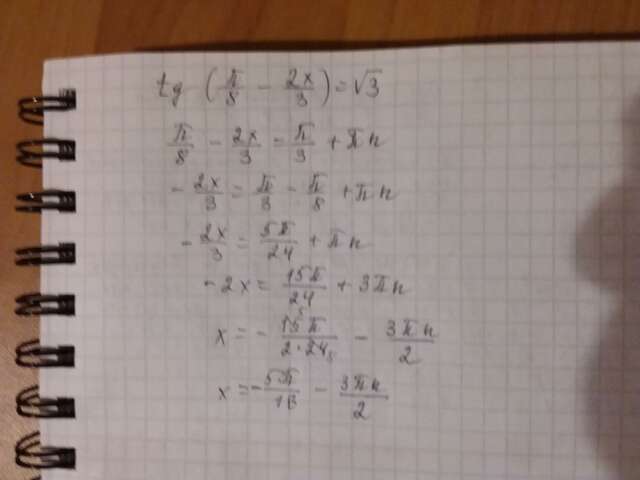 tg (π/8 - 2x/3) = √3
π/8 - 2x/3 - π/3 + πn
- 2x/3 = π/3 - π/8 + πn
- 2x/3 = 5π/24 + πn
- 2x = 15π/24 + 3πn
x = - 15π/2·24 - 3πn/2
x = - 5π/16 - 3πn/2